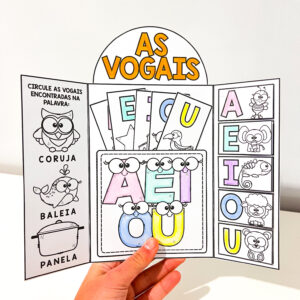 AS
VOGAIS
CIRCULE AS VOGAIS
ENCONTRADAS NA
PALAVRA:
CORUJA
BALEIA
PANELA
E O U
A E I
O U
A
E
I
O
U